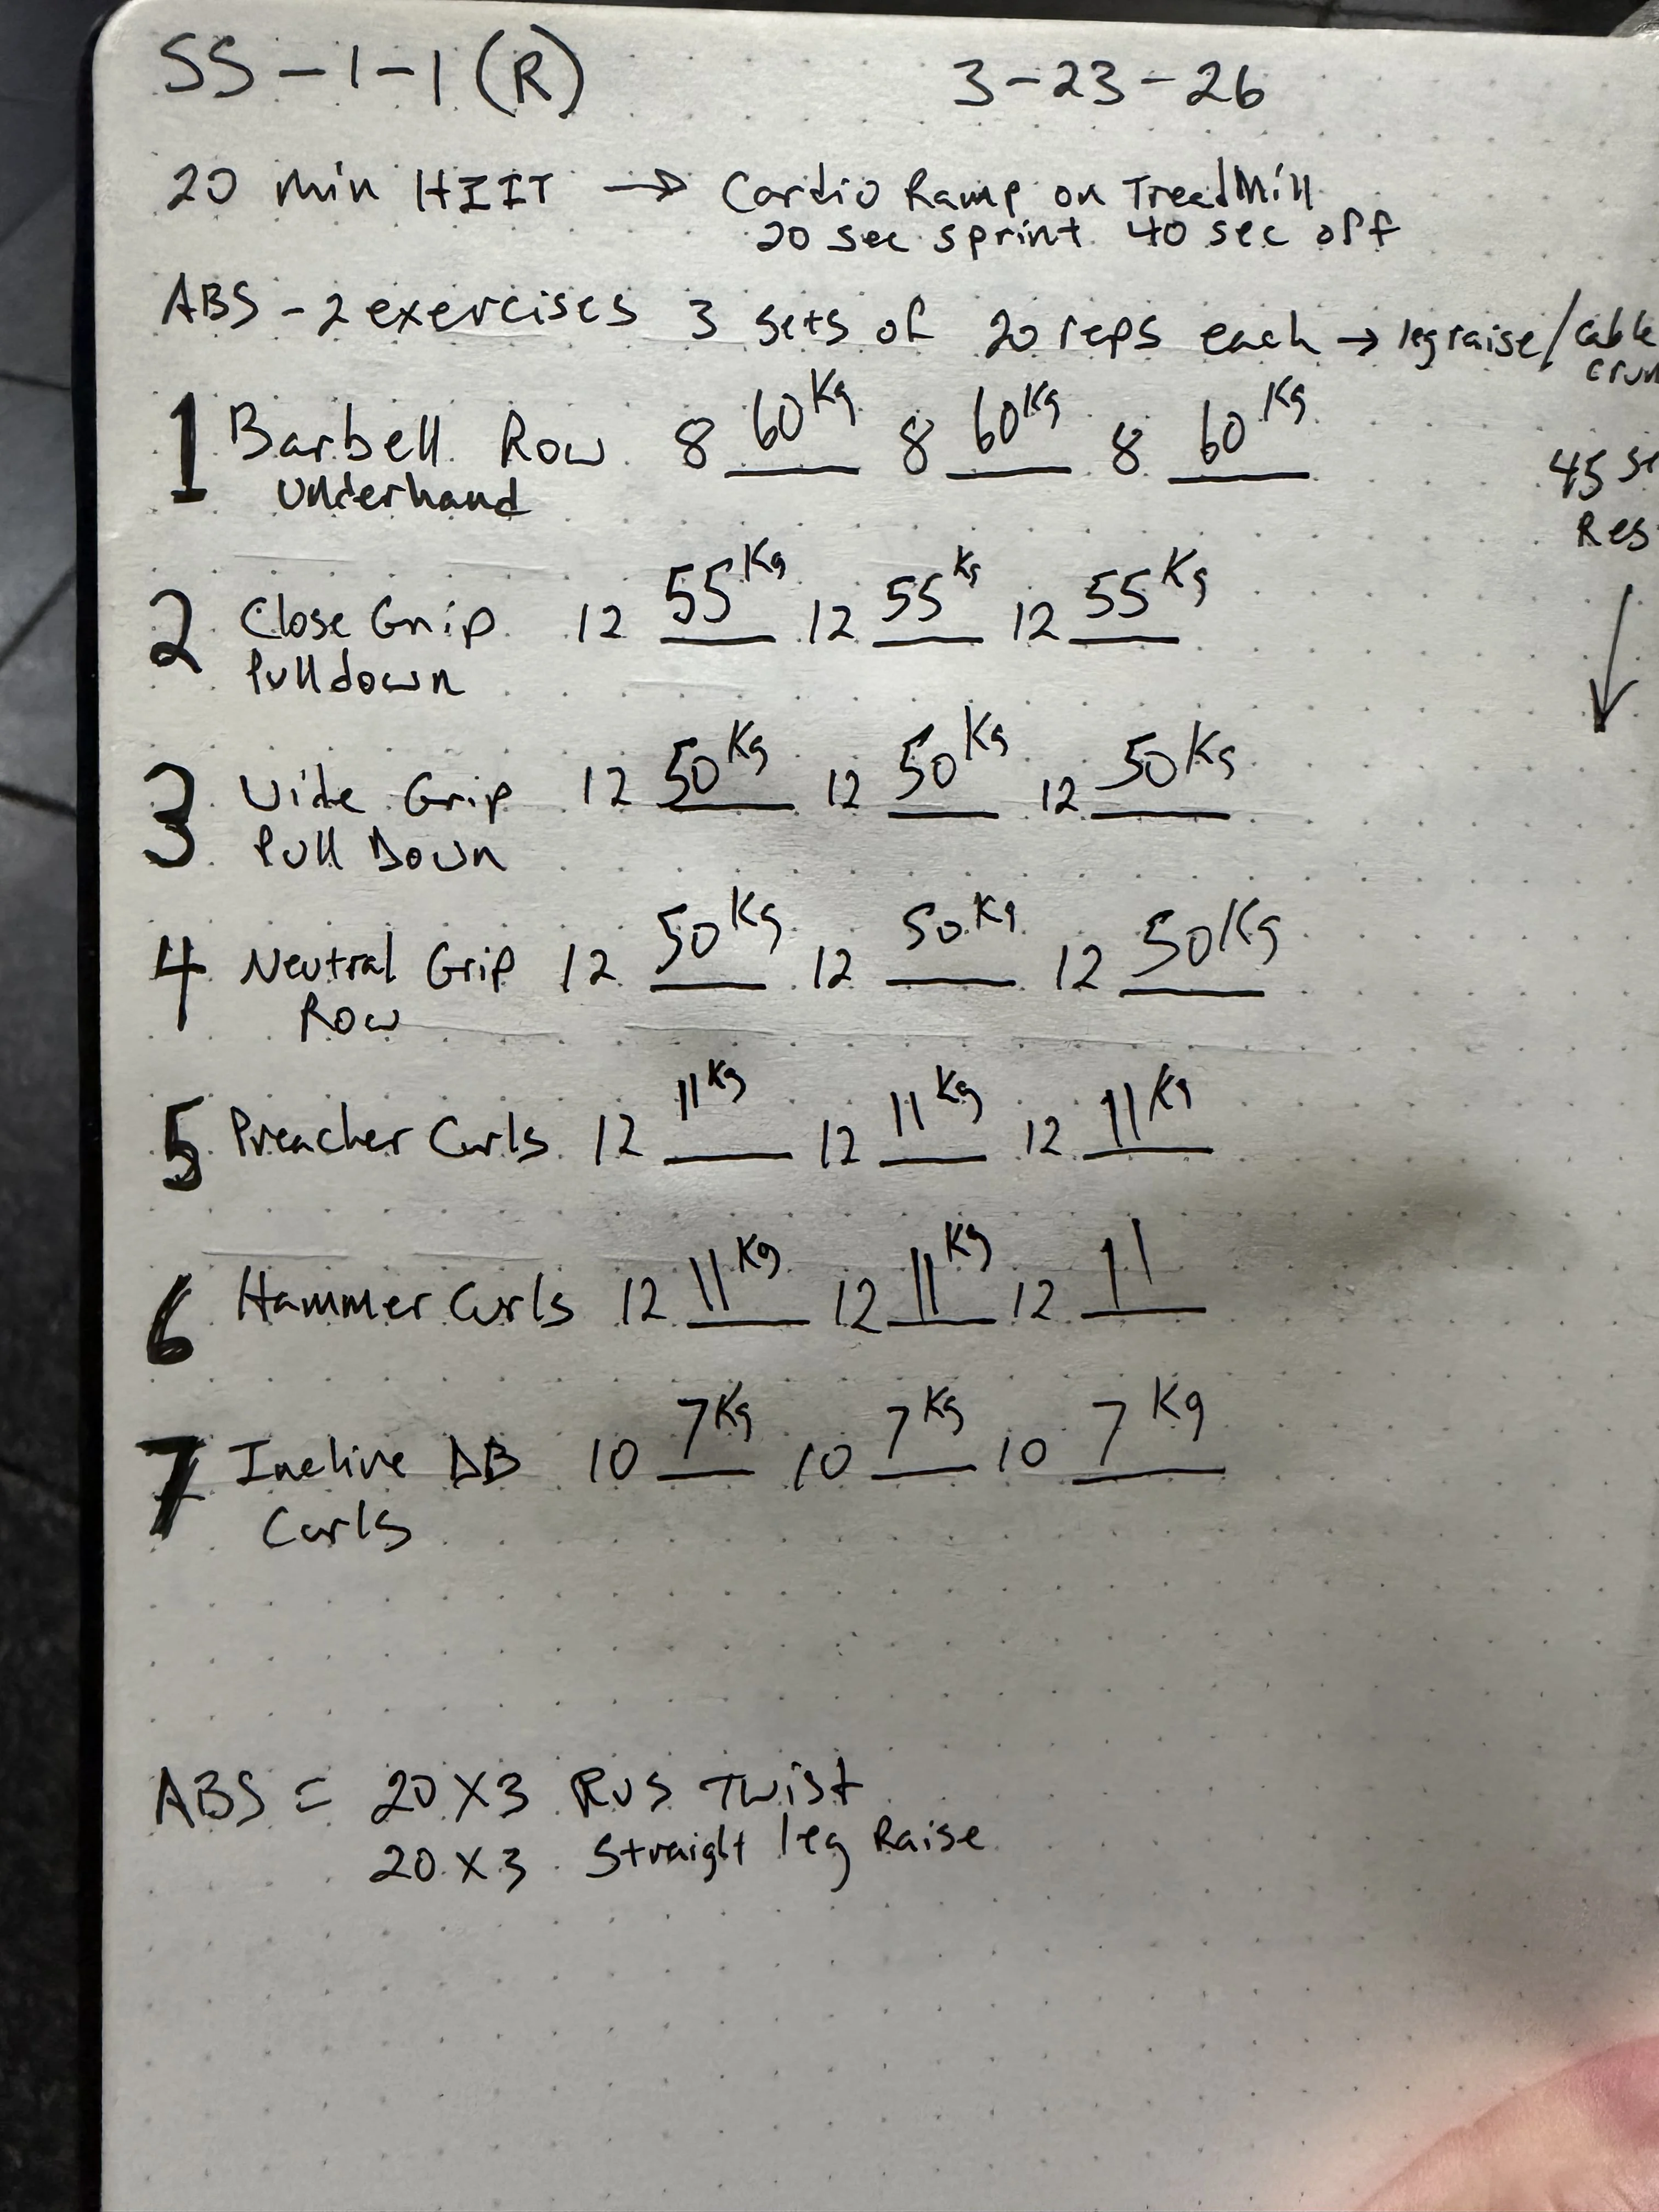 SS-1-1 (R) 3-23-26
20 min HIIT → Cardio Ramp on TreadMill
20 sec sprint 40 sec off
ABS - 2 exercises 3 sets of 20 reps each → leg raise/cable
crun
1 Barbell Row 8 60Kg 8 60Kg 8 60Kg
Underhand
45 se
Res
2 Close Grip 12 55Kg 12 55Kg 12 55Kg
Pulldown
3 Wide Grip 12 50Kg 12 50Kg 12 50Kg
Pull Down
4 Neutral Grip 12 50Kg 12 50Kg 12 50Kg
Row
5 Preacher Curls 12 11Kg 12 11Kg 12 11Kg
6 Hammer Curls 12 11Kg 12 11Kg 12 11
7 Incline DB 10 7Kg 10 7Kg 10 7Kg
Curls
ABS = 20 X 3 Rus Twist
20 X 3 Straight leg Raise